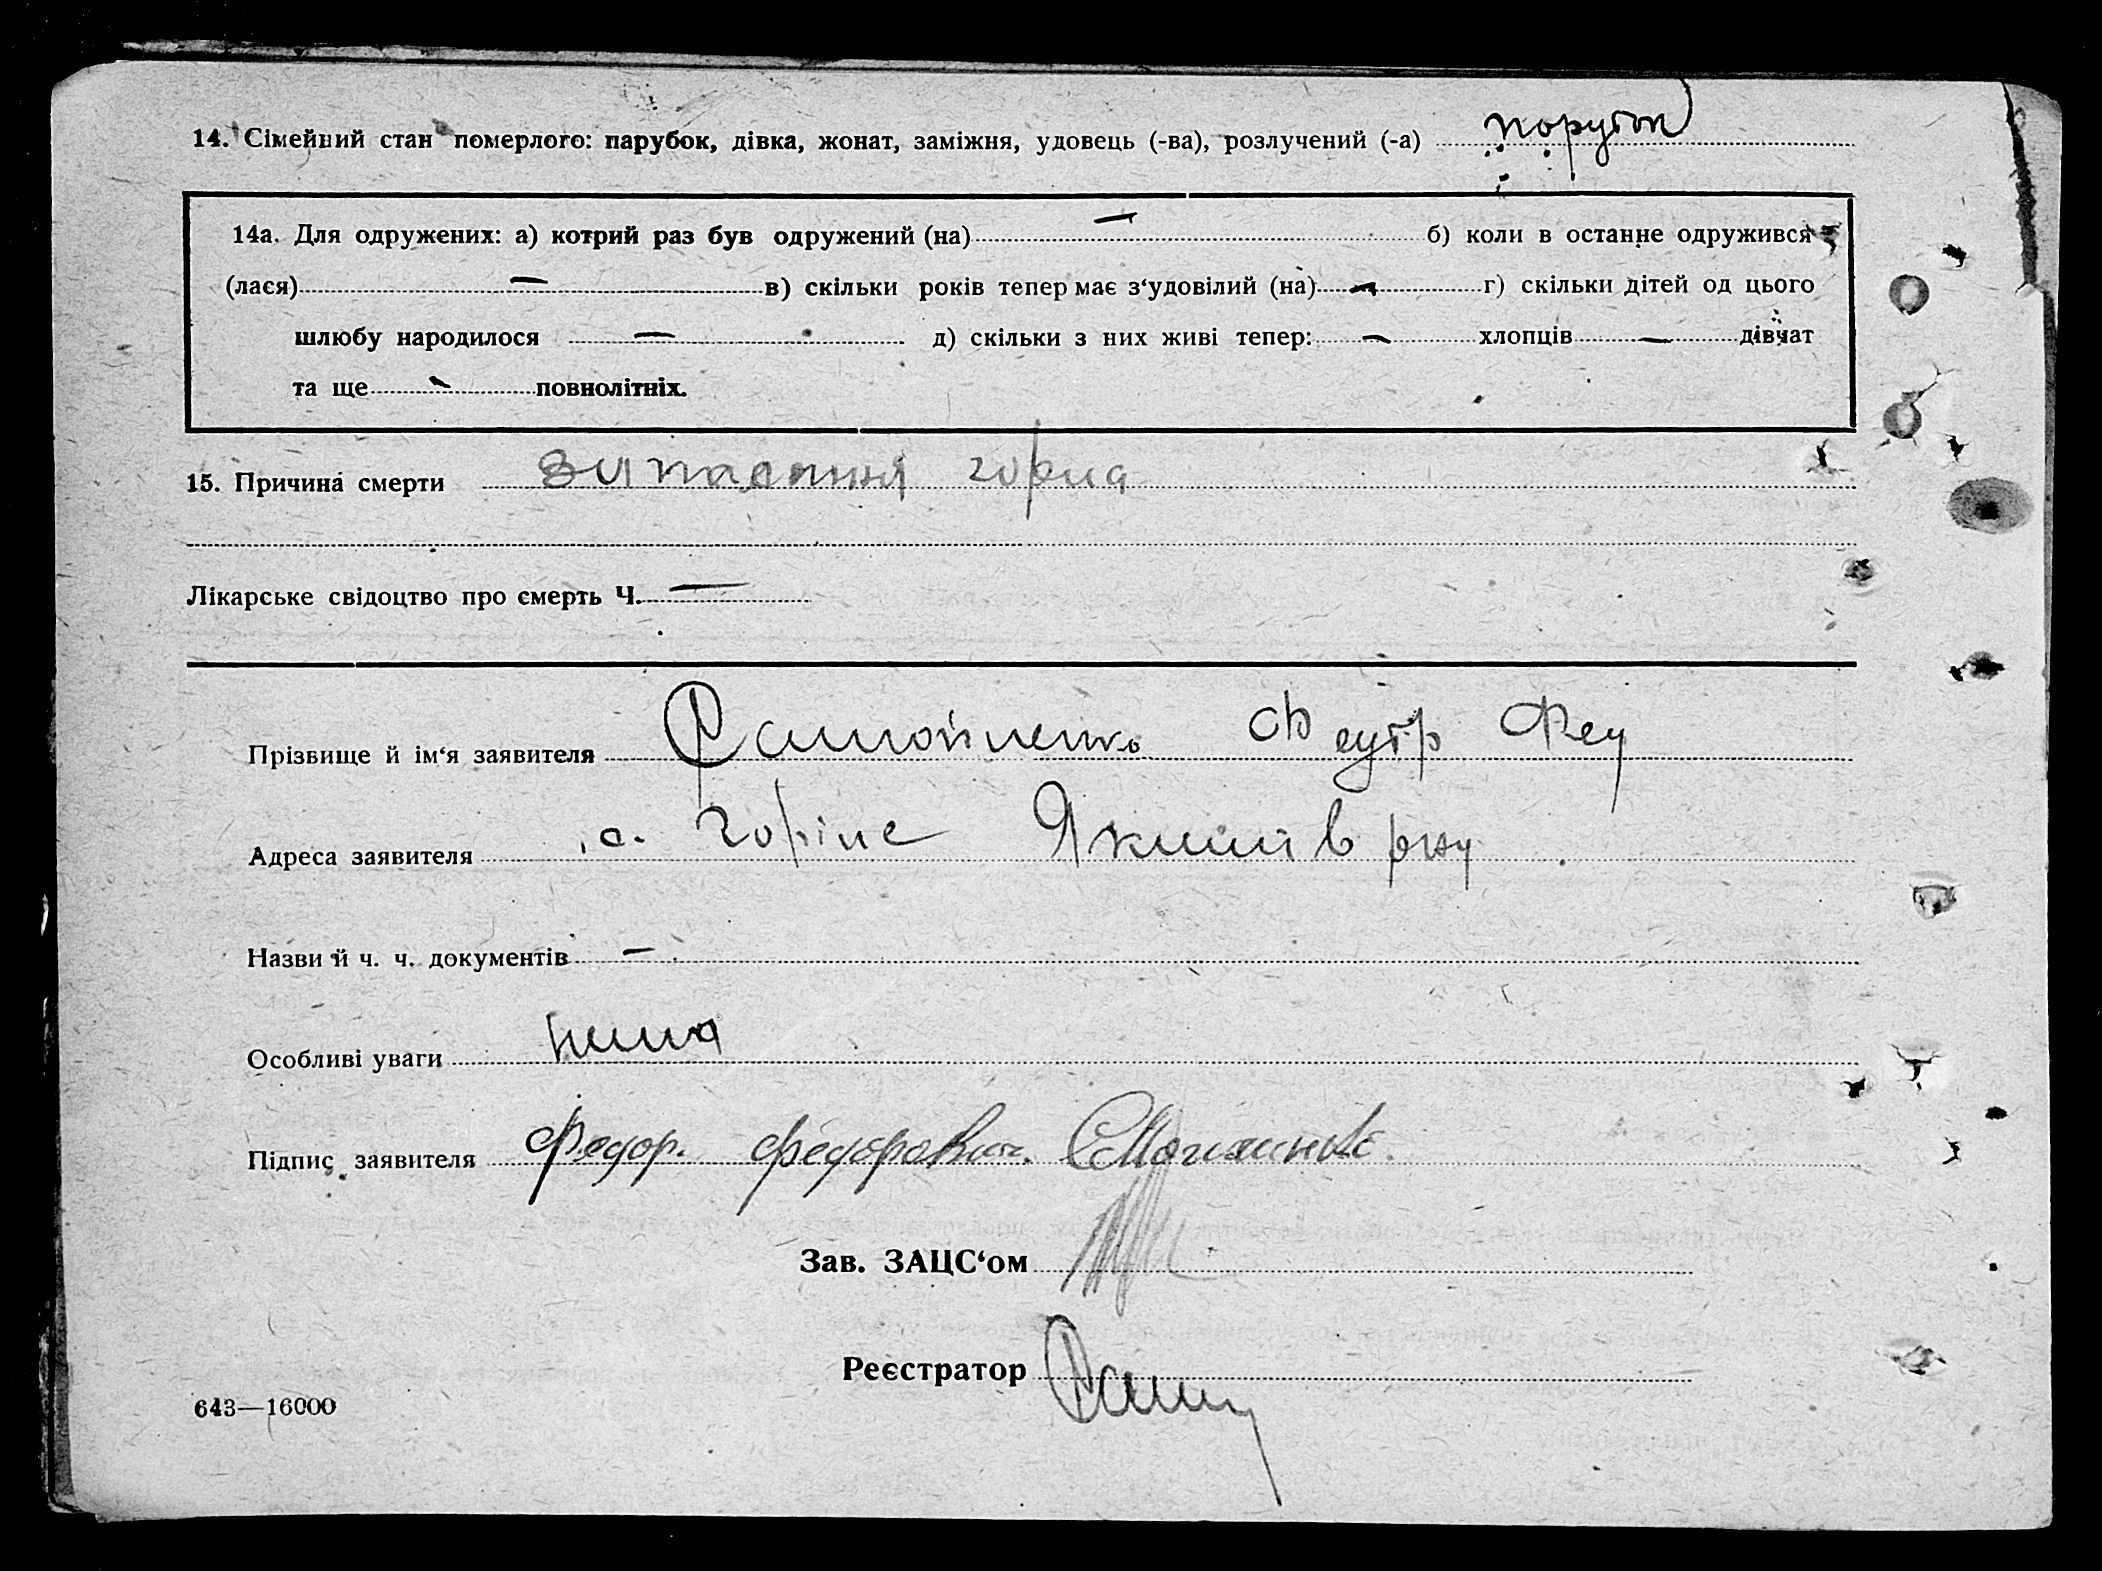 14. Сімейний стан померлого: парубок, дівка, жонат, заміжня, удовець (-ва), розлучений (-а) порубок
14а. Для одружених: а) котрий раз був одружений (на) — б) коли в останне одружився
(лася) — в) скільки років тепер має з‘удовілий (на) — г) скільки дітей од цього
шлюбу народилося — д) скільки з них живі тепер: — хлопців — дівчат
та ще — повнолітніх.
15. Причина смерти горла
Лікарське свідоцтво про смерть Ч. —
Прізвище й ім‘я заявителя Федір Фед
Адреса заявителя с. Горіле Якимів рну
Назви й ч. ч. документів —
Особливі уваги нема
Підпис заявителя Федор. Федорович.
Зав. ЗАЦС‘ом
Реєстратор
643—16000